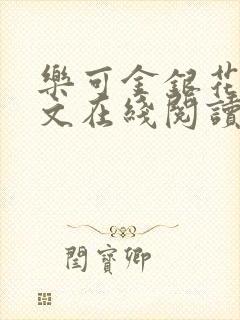 樂可金銀花
文在綫閱讀
閆寶卿